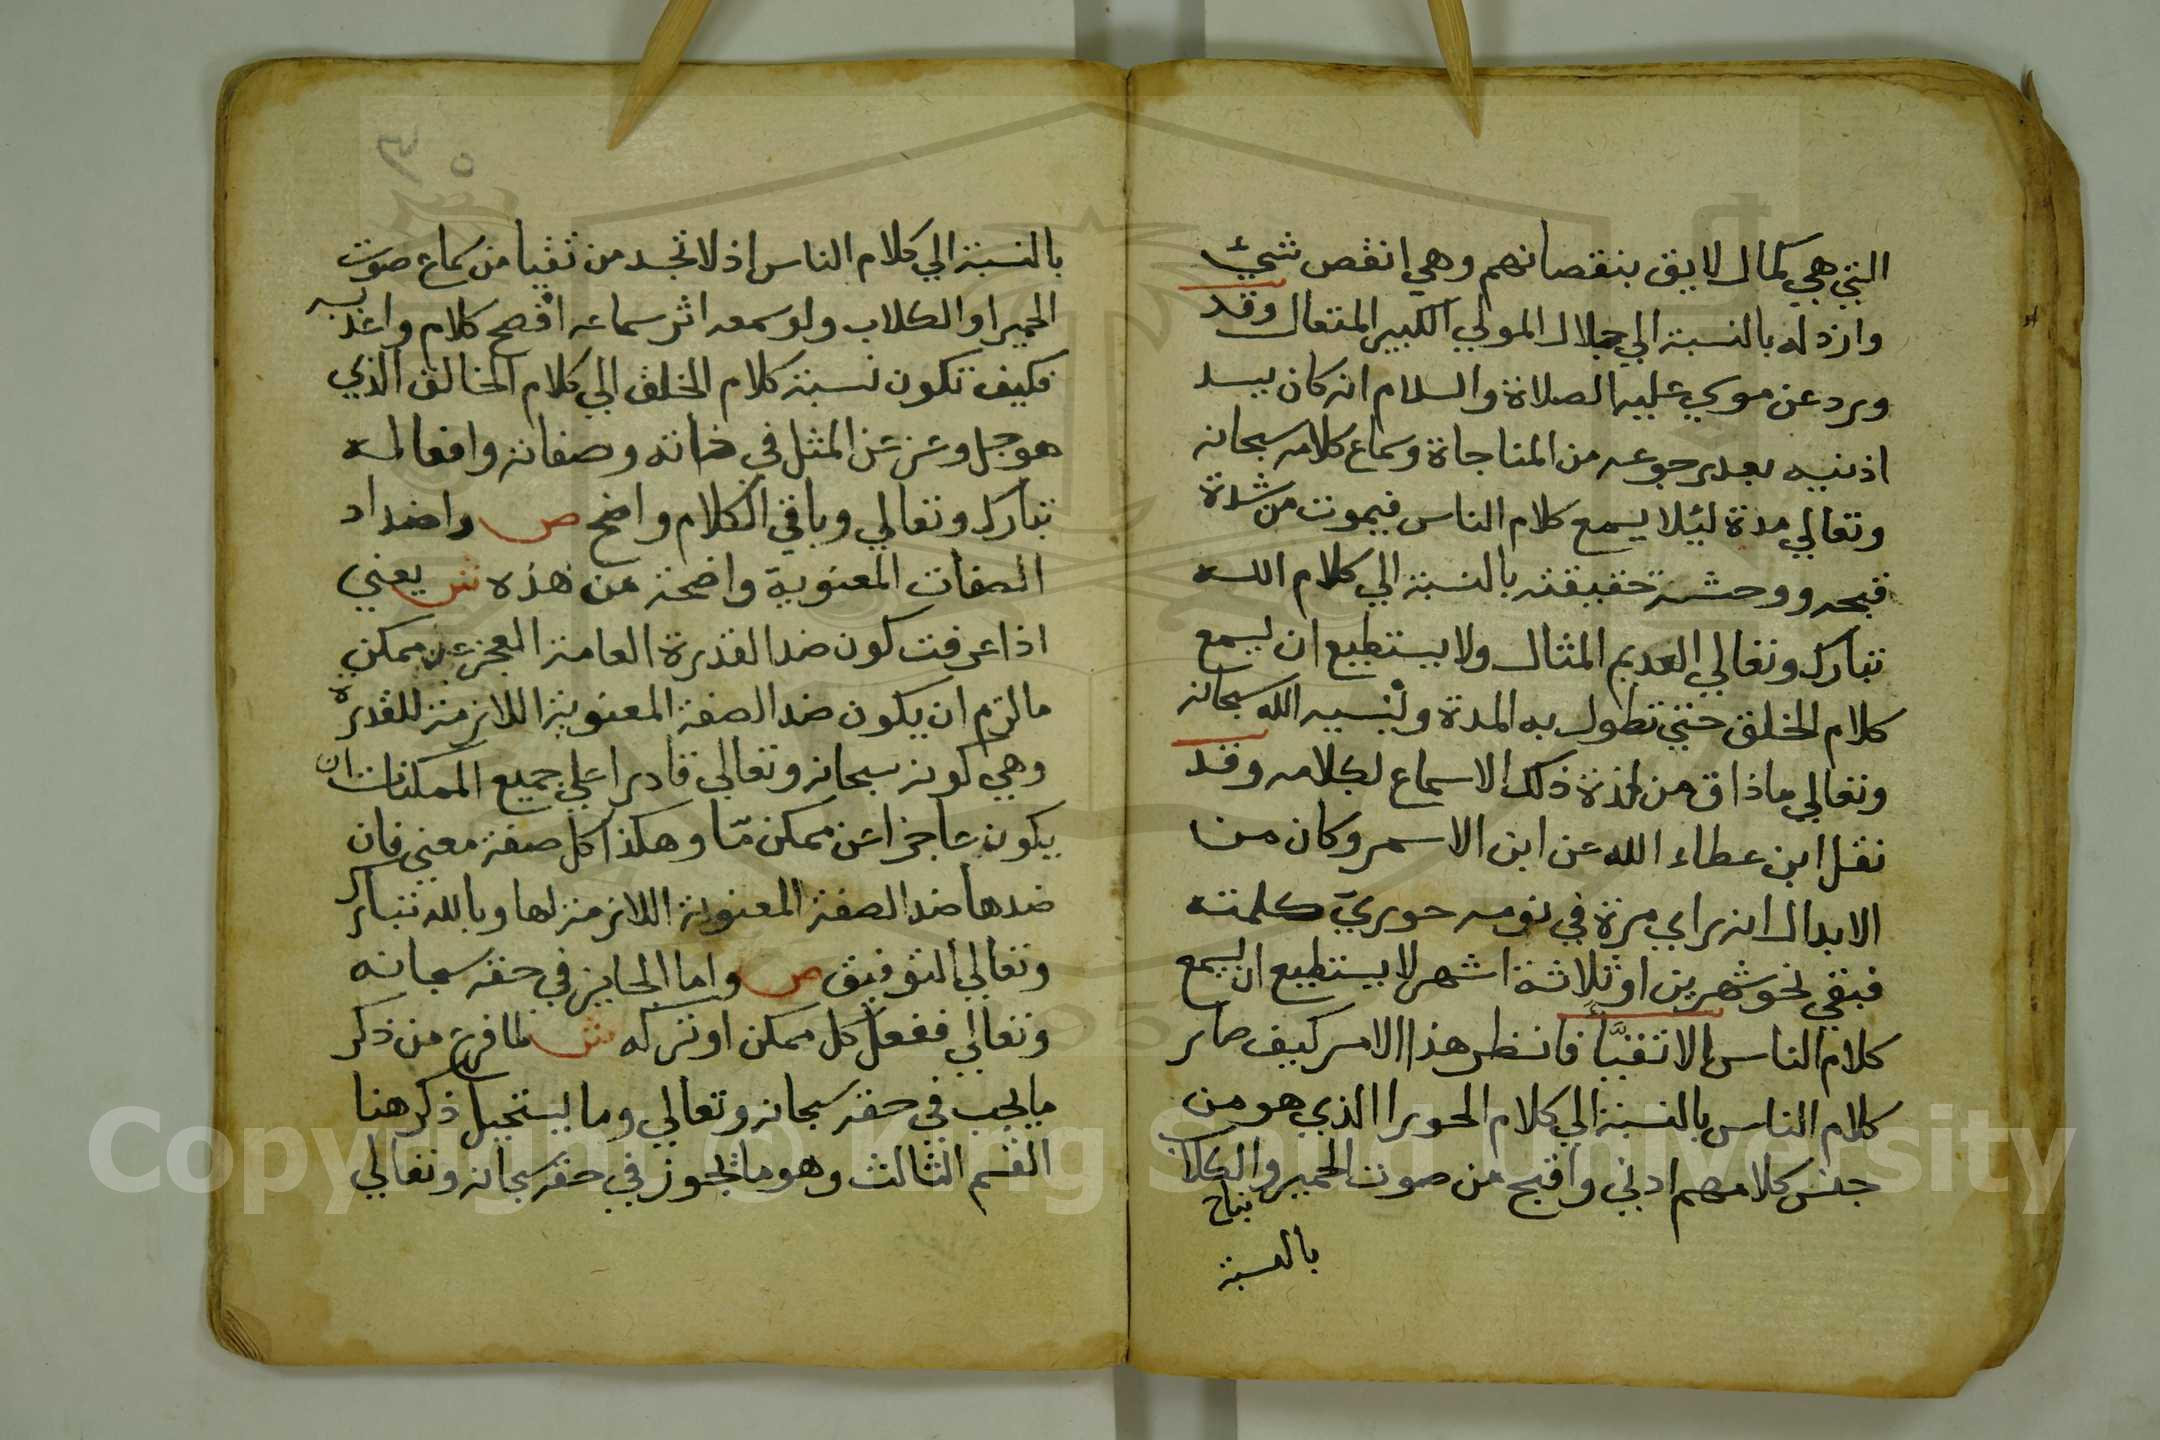 التي هي كمال لايق بنقصانهم وهي انقص شيئ
وارذله بالنسبة الي جلال المولي الكبير المتعال وقد
ورد عن موسي عليه الصلاة والسلام انه كان يسد
اذنيه بعد رجوعه من المناجاة وسماع كلامه سبحانه
وتعالي مدة ليلا يسمع كلام الناس فيموت من شدة
قبحه ووحشة حقيقته بالنسبة الي كلام الله
تبارك وتعالي العديم المثال ولا يستطيع ان يسمع
كلام الخلق حتي تطول به المدة وينسيه الله سبحانه
وتعالي ما ذاق من لذة ذلك الاسماع لكلامه وقد
نقل ابن عطاء الله عن ابن الاسمر وكان من
الابدال انه راي مرة في نومه حوري كلمته
فبقي نحو شهرين او ثلاثة اشهر لا يستطيع ان يسمع
كلام الناس الا تقيّا فانظر هذا الامر كيف صار
كلام الناس بالنسبة الي كلام الحورا الذي هو من
جنس كلامهم ادني واقبح من صوت الحمير والكلاب
نباح
بالنسبة
بالنسبة الي كلام الناس اذ لا تجد من تقيا من سماع صوت
الحمير او الكلاب ولو سمعه اثر سماعه افصح كلام واعذبه
فكيف تكون نسبة كلام الخلق الي كلام الخالق الذي
هو جل وعز عن المثل في ذاته وصفاته وافعاله
تبارك وتعالي وباقي الكلام واضح ص واضداد
الصفات المعنوية واضحة من هذه ش يعني
اذا عرفت كون ضد القدرة العامة العجز عن ممكن
ما لزم ان يكون ضد الصفة المعنوية اللازمة للقدرة
وهي كونه سبحانه وتعالي قادرا علي جميع الممكنات ان
يكون عاجزا عن ممكن مّا وهكذا كل صفة معني فان
ضدها ضد الصفة المعنوية اللازمة لها وبالله تبارك
وتعالي التوفيق ص واما الجايز في حقه سبحانه
وتعالي ففعل كل ممكن او تركه ش لما فرغ من ذكر
ما يجب في حقه سبحانه وتعالي وما يستحيل ذكر هنا
القسم الثالث وهو ما يجوز في حقه سبحانه وتعالي
Copyright © King Saud University